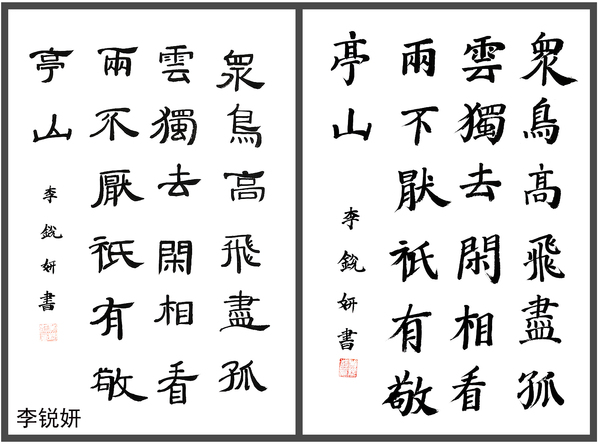 眾鳥高飛盡孤
雲獨去閑相看
兩不厭祇有敬
亭山
李銳妍書
眾鳥高飛盡孤
雲獨去閑相看
兩下厭祇有敬
亭山
李銳妍書
李锐妍